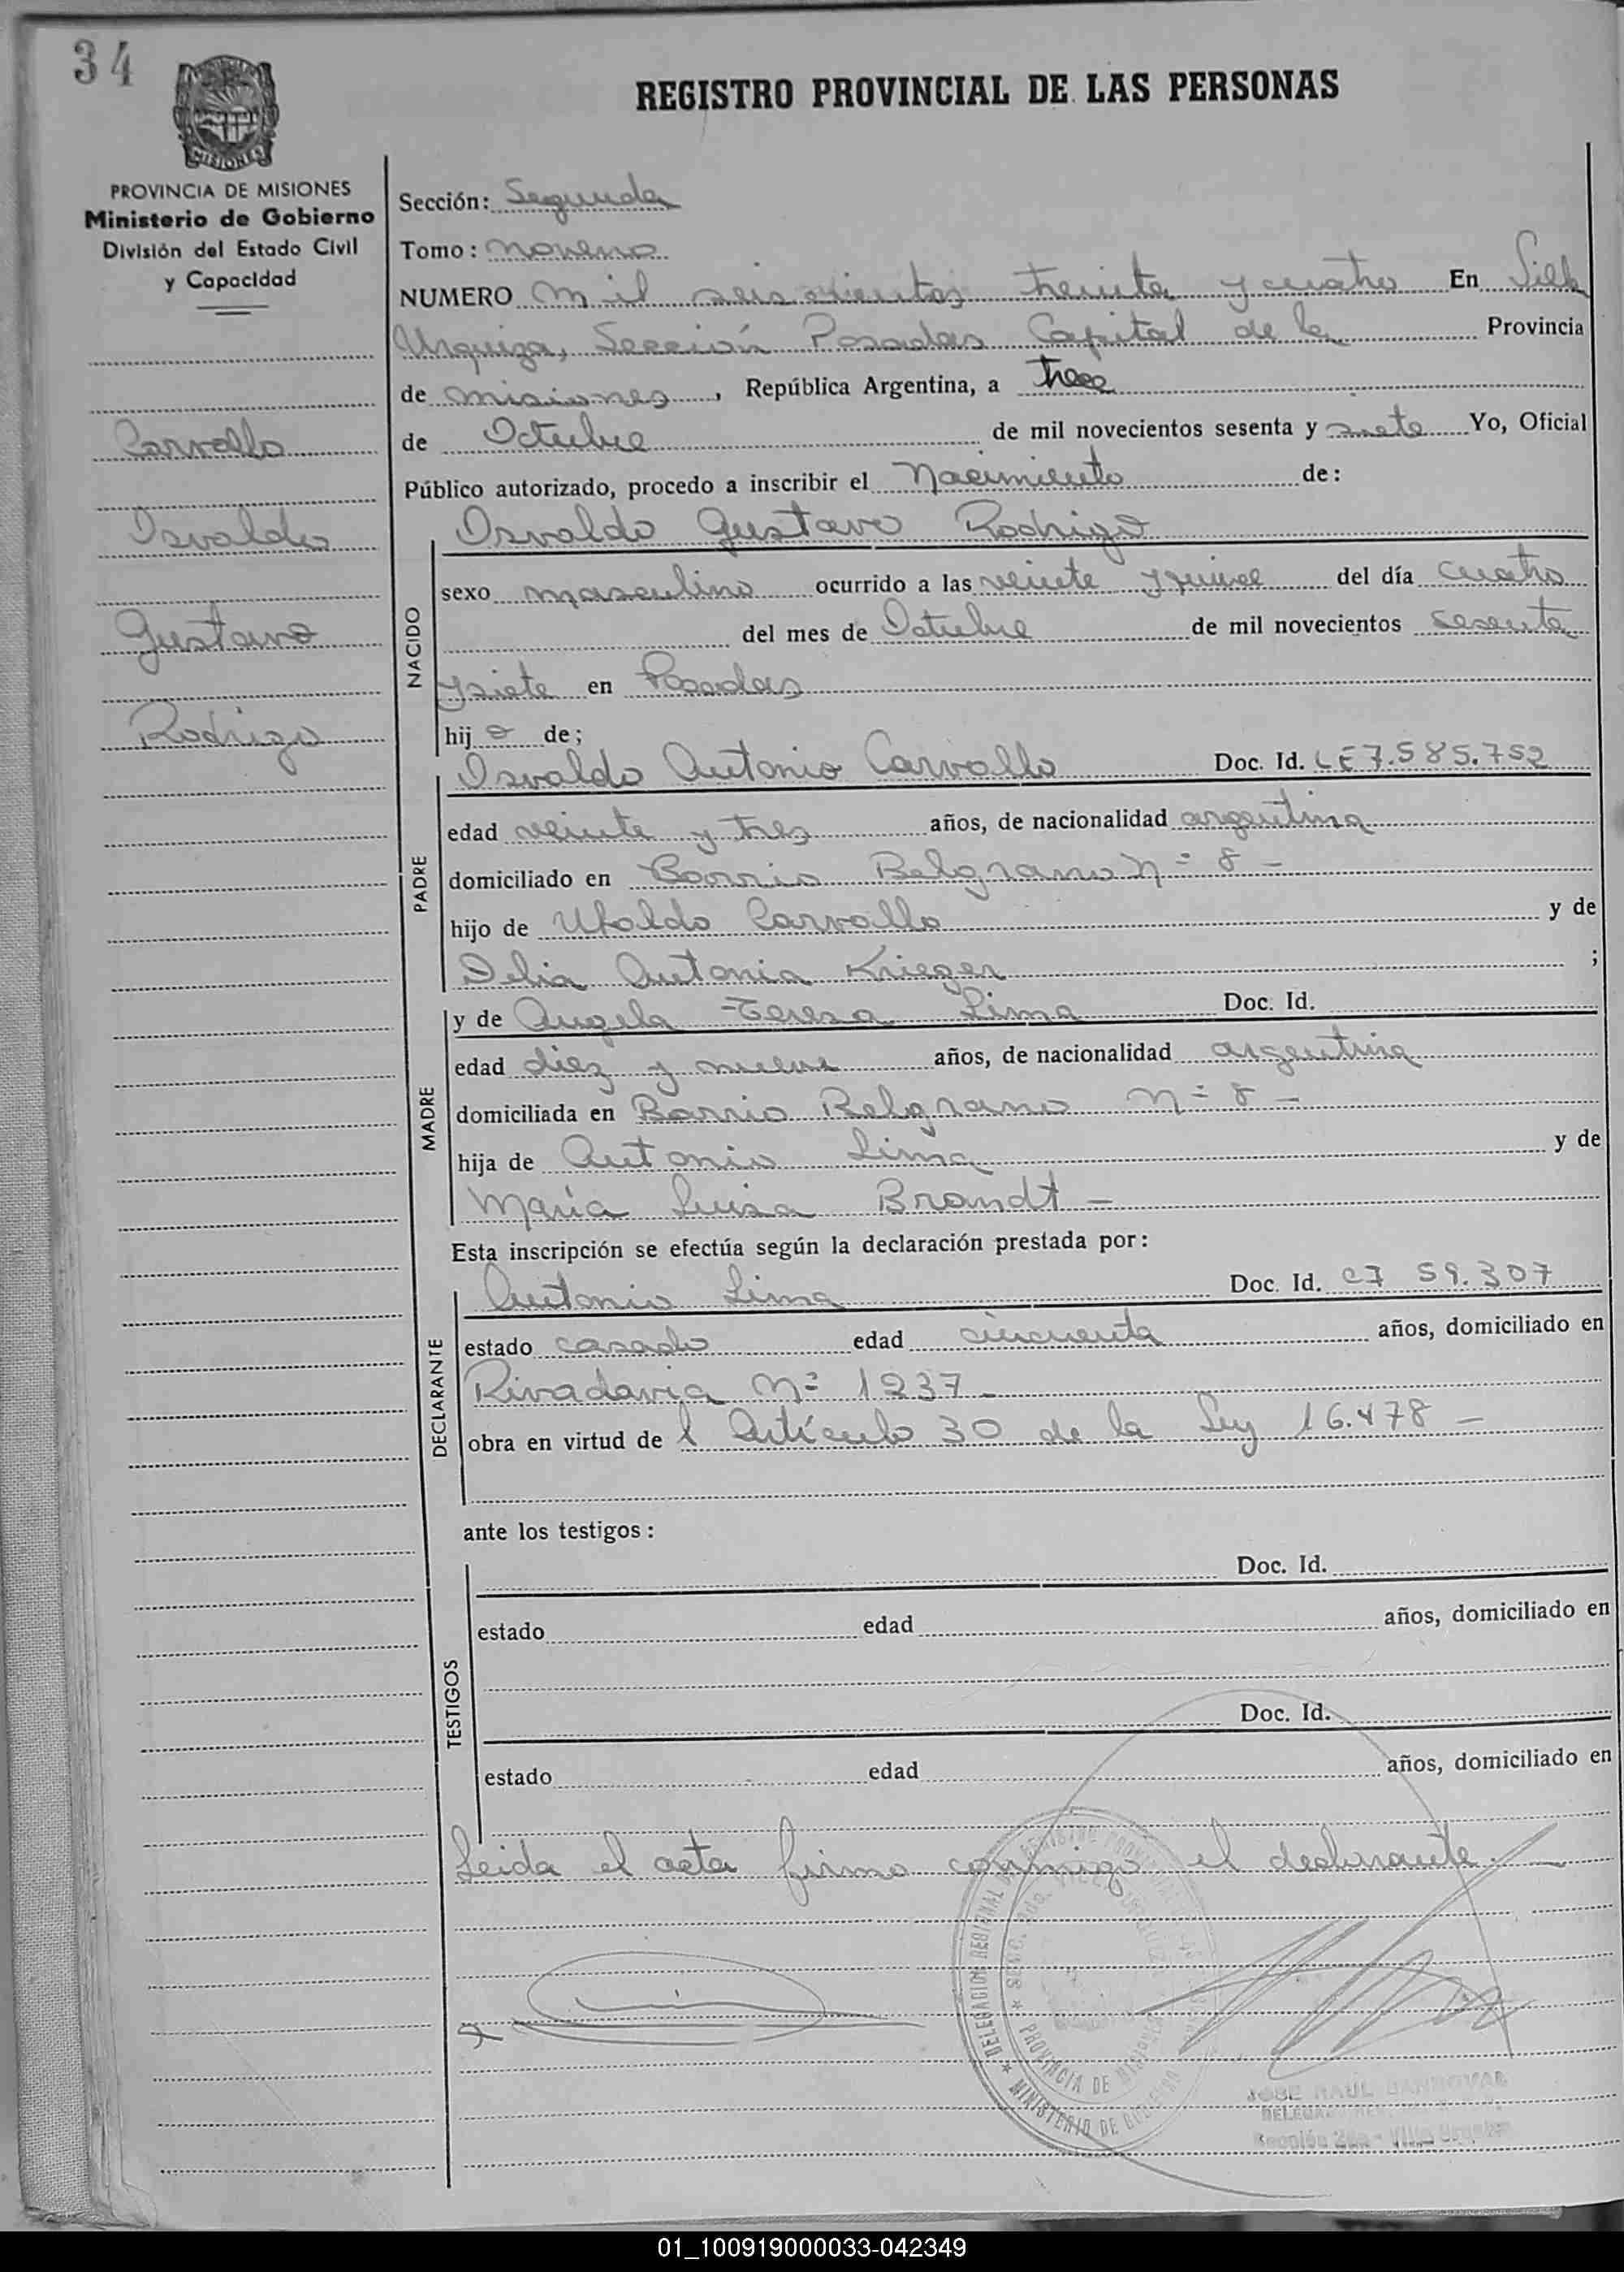 34
MISIONES
REGISTRO PROVINCIAL DE LAS PERSONAS
PROVINCIA DE MISIONES
Ministerio de Gobierno
División del Estado Civil
y Capacidad
Carvallo
Osvaldo
Gustavo
Rodrigo
Sección: Segunda
Tomo: noveno
NUMERO mil seiscientos treinta y cuatro En Villa
Urquiza, Sección Posadas Capital de la Provincia
de misiones, República Argentina, a trece
de Octubre de mil novecientos sesenta y siete Yo, Oficial
Público autorizado, procedo a inscribir el Nacimiento de:
NACIDO
Osvaldo Gustavo Rodrigo
sexo masculino ocurrido a las veinte y quince del día cuatro
del mes de Octubre de mil novecientos sesenta
y siete en Posadas
hijo de;
PADRE
Osvaldo Antonio Carvallo Doc. Id. LE 7.585.752
edad veinte y tres años, de nacionalidad argentina
domiciliado en Barrio Belgrano Nº 8 -
hijo de Ubaldo Carvallo y de
Delia Antonia Krieger ;
MADRE
y de Angela Teresa Lima Doc. Id.
edad diez y nueve años, de nacionalidad argentina
domiciliada en Barrio Belgrano Nº 8 -
hija de Antonio Lima y de
María Luisa Brandt -
Esta inscripción se efectúa según la declaración prestada por:
DECLARANTE
Antonio Lima Doc. Id. CI 59.307
estado casado edad cincuenta años, domiciliado en
Rivadavia Nº 1237 -
obra en virtud del Artículo 30 de la Ley 16.478 -
ante los testigos:
TESTIGOS
Doc. Id.
estado edad años, domiciliado en
Doc. Id.
estado edad años, domiciliado en
Leida el acta firma conmigo el declarante. -
DELEGACION REGIONAL REGISTRO PROVINCIAL
MINISTERIO DE GOBIERNO
PROVINCIA DE MISIONES
JOSE RAUL SANDOVAL
Sección 2da - Villa Urquiza
01_100919000033-042349